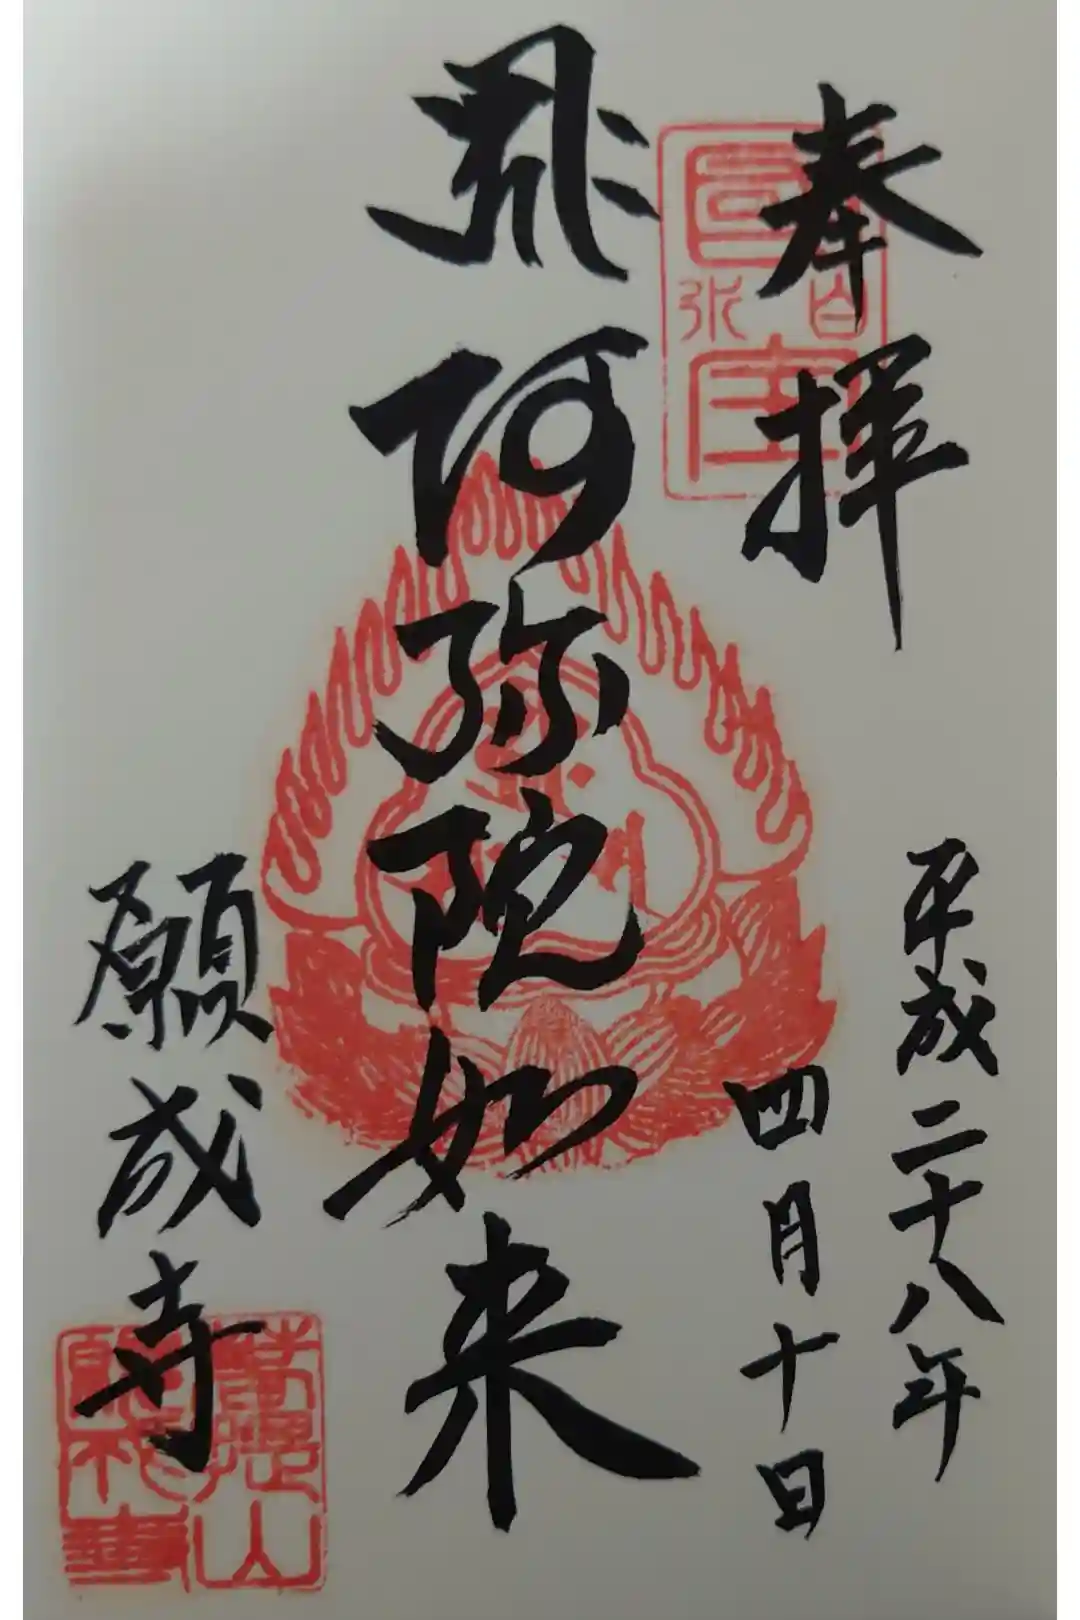 奉拝
平成二十八年
四月十日
阿弥陀如来
願成寺